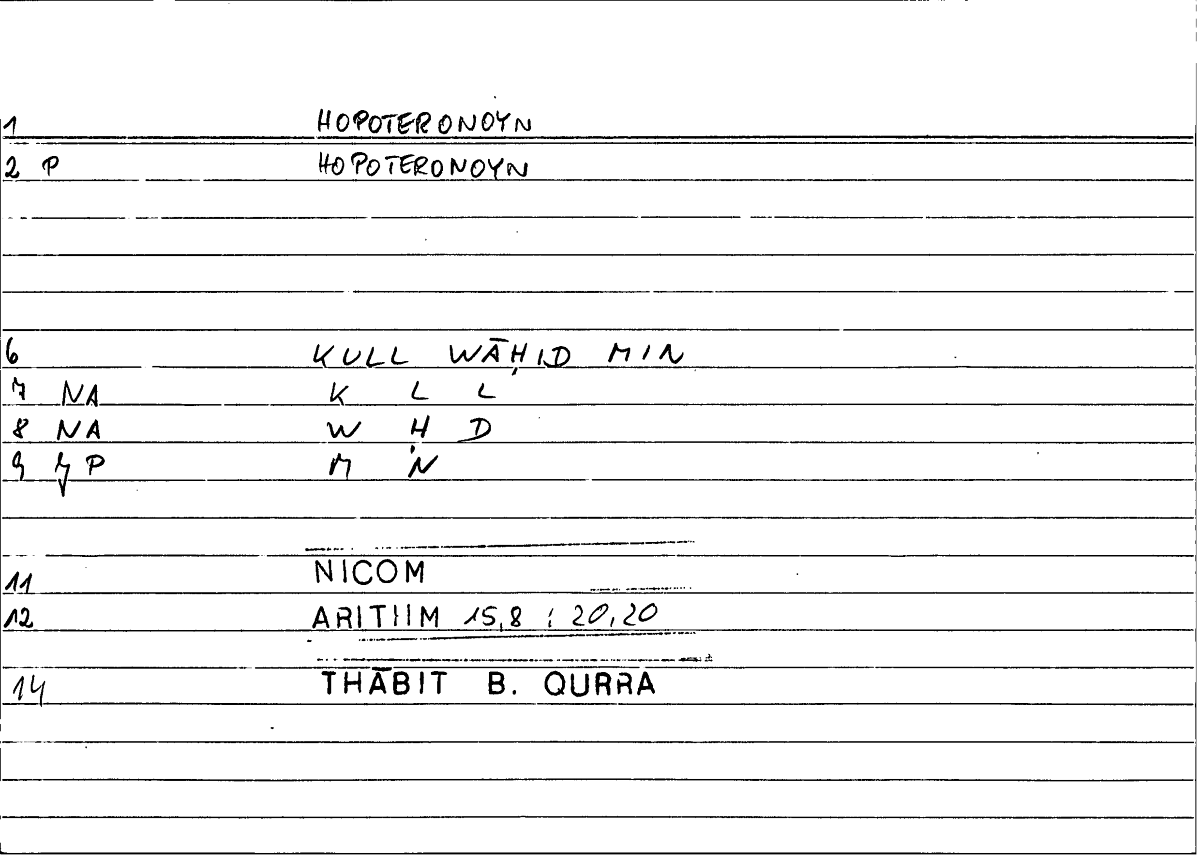 1 HOPOTERONOYN
2 P HOPOTERONOYN
6 KULL WĀḤID MIN
7 NA K L L
8 NA W Ḥ D
9 P M N
11 NICOM
12 ARITHM 15,8 ; 20,20
14 THĀBIT B. QURRA